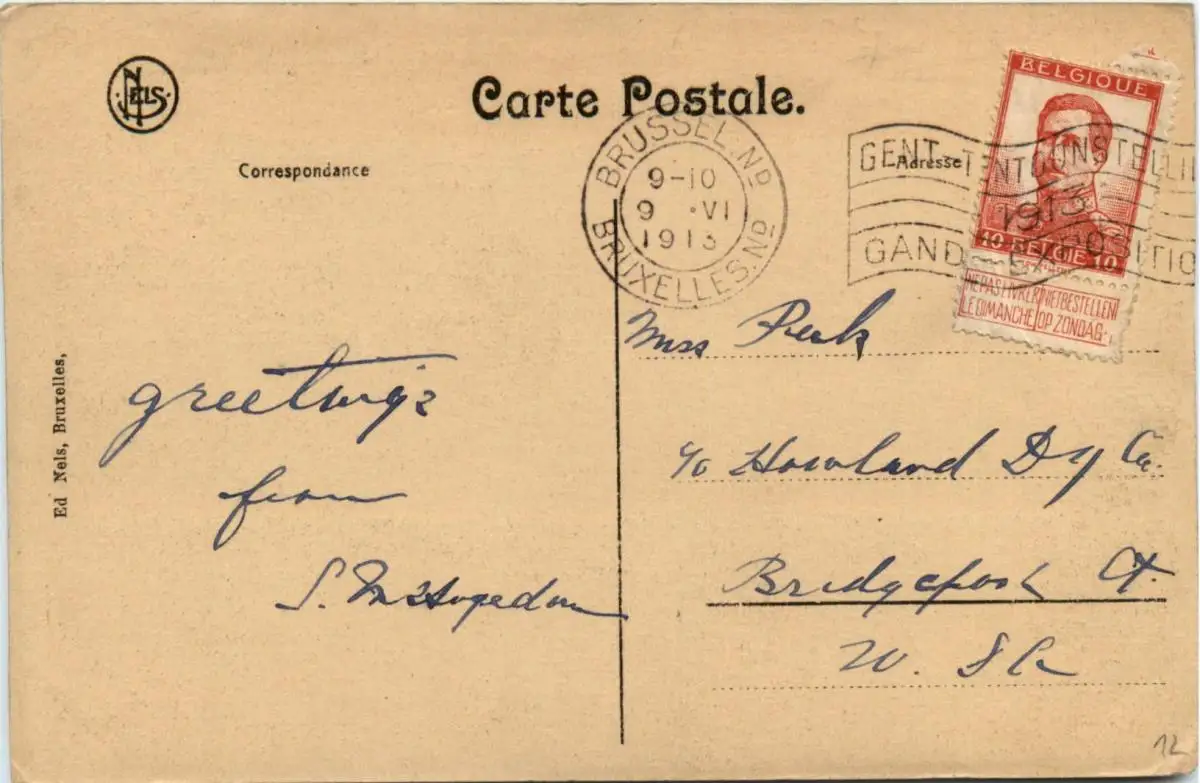 NELS
Carte Postale.
Correspondance
Adresse
BRUSSEL. ND
9-10
9 ·VI
1913
BRUXELLES. ND
GENT - TENTOONSTELLI
1913
GAND - EXPOSITIO
BELGIQUE
10 BELGIË 10
NE PAS LIVRER NIET BESTELLEN
LE DIMANCHE OP ZONDAG
Ed Nels, Bruxelles,
greetings
from
S.
Miss Peck
c/o Howland Dry Co.
Bridgeport Ct.
12